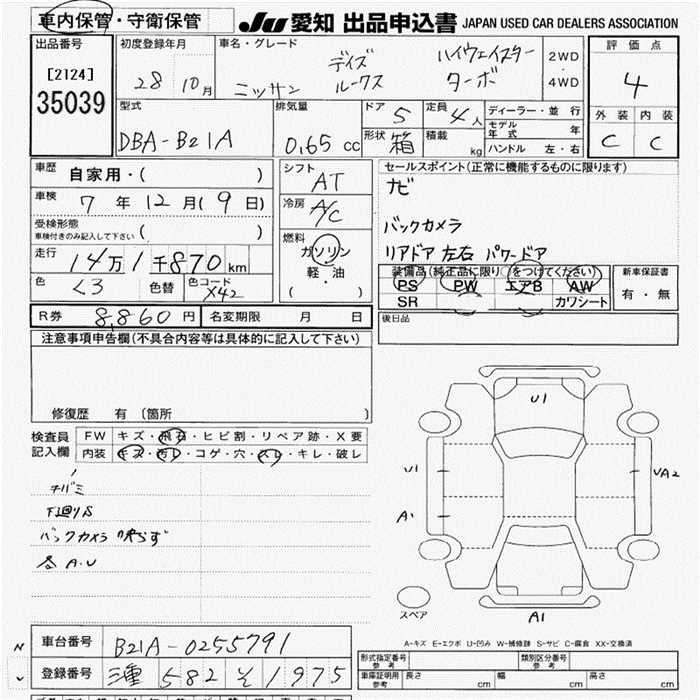 車内保管・守衛保管
JU 愛知 出品申込書 JAPAN USED CAR DEALERS ASSOCIATION
出品番号
[2124]
35039
初度登録年月
28 10月
車名・グレード
ニッサン
デイズ
ルークス
ハイウェイスター
ターボ
2WD
・
4WD
評価点
4
外装 内装
C C
型式
DBA-B21A
排気量
0.65 cc
ドア 5
形状 箱
定員 4人
積載 kg
ディーラー・並行
モデル年式 年
ハンドル 左・右
車歴
自家用・( )
車検
7年12月(9日)
受検形態
車検付きのみ記入して下さい ( )
走行
14万1千870km
色
クロ 色替
色コード
X42
シフト
AT
冷房
A/C
燃料
ガソリン
軽・油
( )
セールスポイント(正常に機能するものに限ります)
ナビ
バックカメラ
リアドア 左右 パワードア
装備品(純正品に限り○をつけてください)
PS PW エアB AW
SR カワシート
新車保証書
有・無
R券 8,860円 名変期限 月 日
後日品
注意事項申告欄(不具合内容等は具体的に記入して下さい)
修復歴 有(箇所 )
検査員
記入欄
FW キズ・飛石・ヒビ割・リペア跡・X要
内装 キズ・汚レ・コゲ・穴・スレ・キレ・破レ
下廻りS
バックカメラ 映らず
各A.U
U1
U1
A1
UA2
A1
スペア
A-キズ E-エクボ U-凹み W-補修跡 S-サビ C-腐食 XX-交換済
車台番号 B21A-0255791
登録番号 三重 582 そ 1975
型式指定番号
参考
類別区分番号
参考
車庫証明用
参考
長さ cm 幅 cm 高さ cm